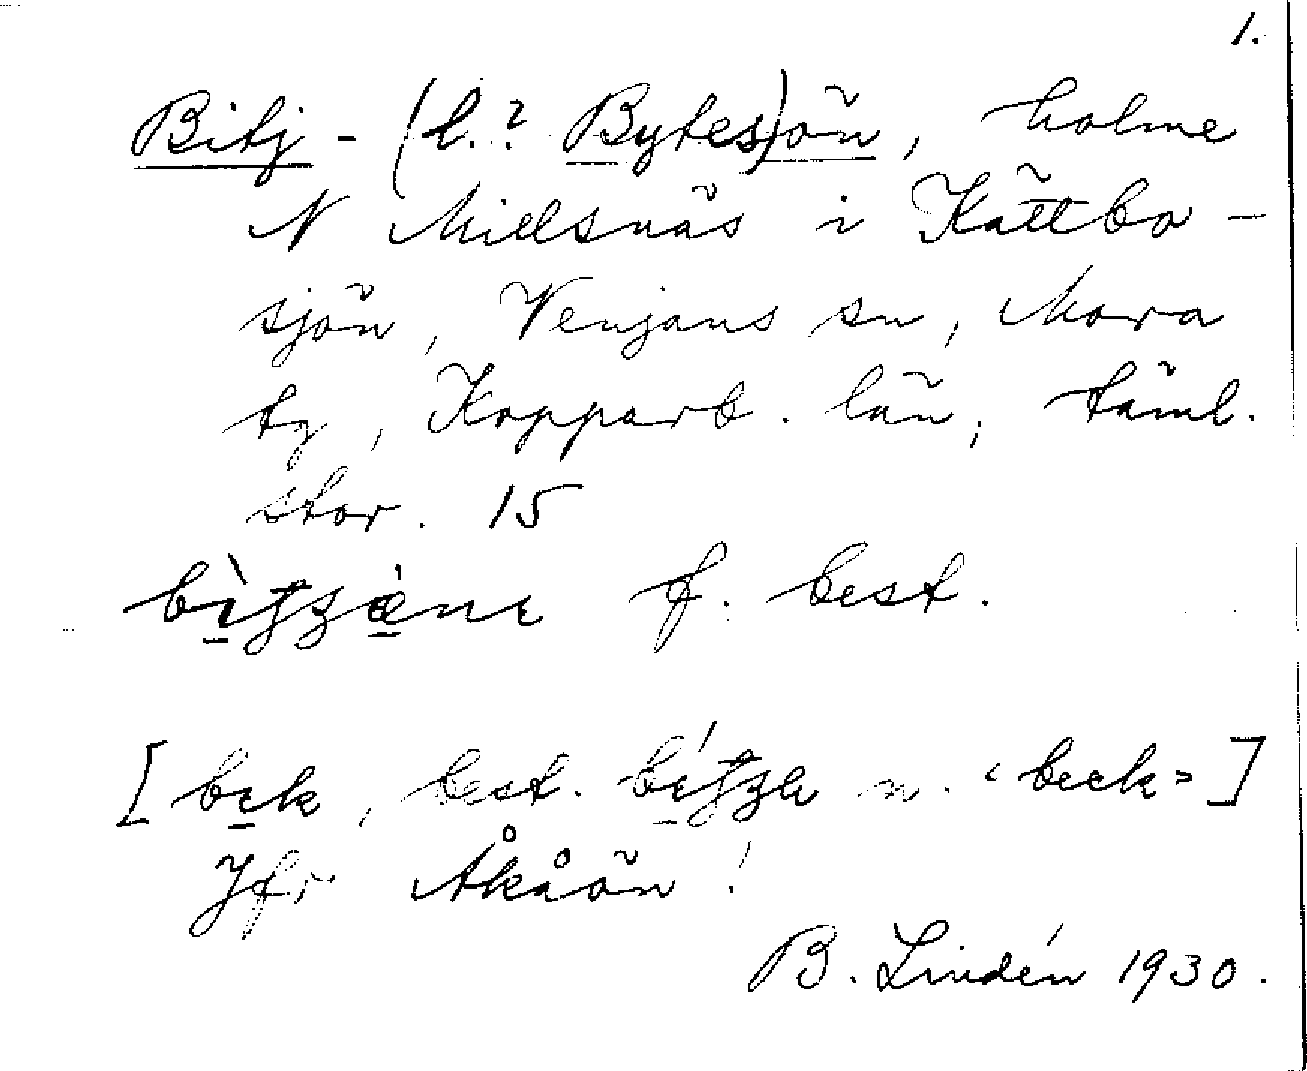 1.
Bitj - (l.? Bytes)ön, holme
N Millsnäs i Kättbo-
sjön, Venjans sn, Mora
tg, Kopparb. län, täml.
stor. 15
f. best.
[bek, best. n. "beck"]
Jfr Åkåön!
B. Lindén 1930.